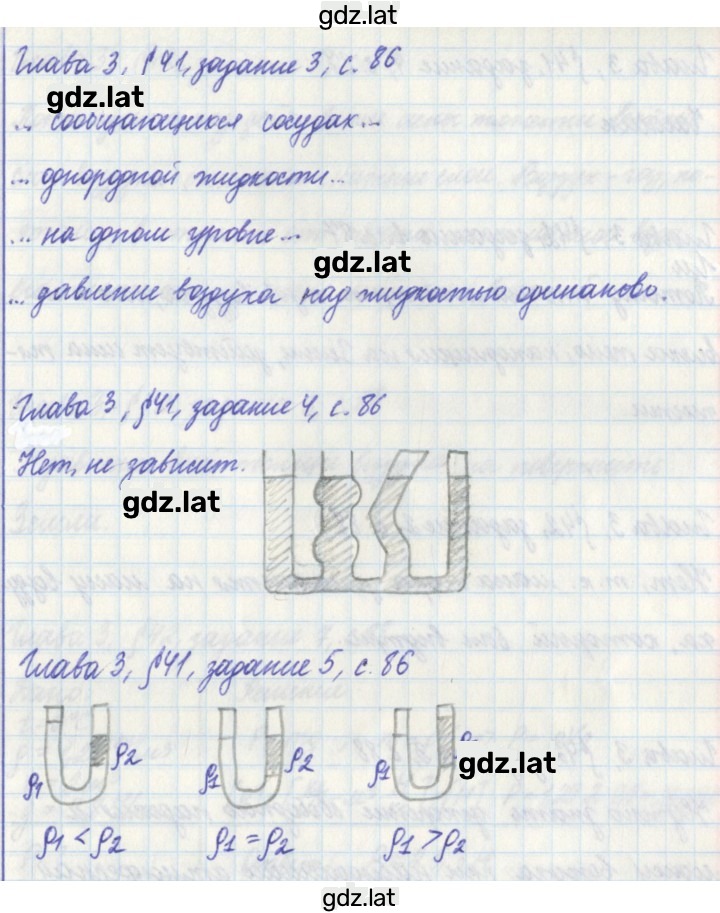 gdz.lat
Глава 3, §41, задание 3, с. 86
gdz.lat
... сообщающихся сосудах...
... однородной жидкости...
... на одном уровне...
gdz.lat
... давление воздуха над жидкостью одинаково.
Глава 3, §41, задание 4, с. 86
Нет, не зависит.
gdz.lat
Глава 3, §41, задание 5, с. 86
ρ1 ρ2 ρ1 ρ2 ρ1
gdz.lat
ρ1 < ρ2 ρ1 = ρ2 ρ1 > ρ2
gdz.lat